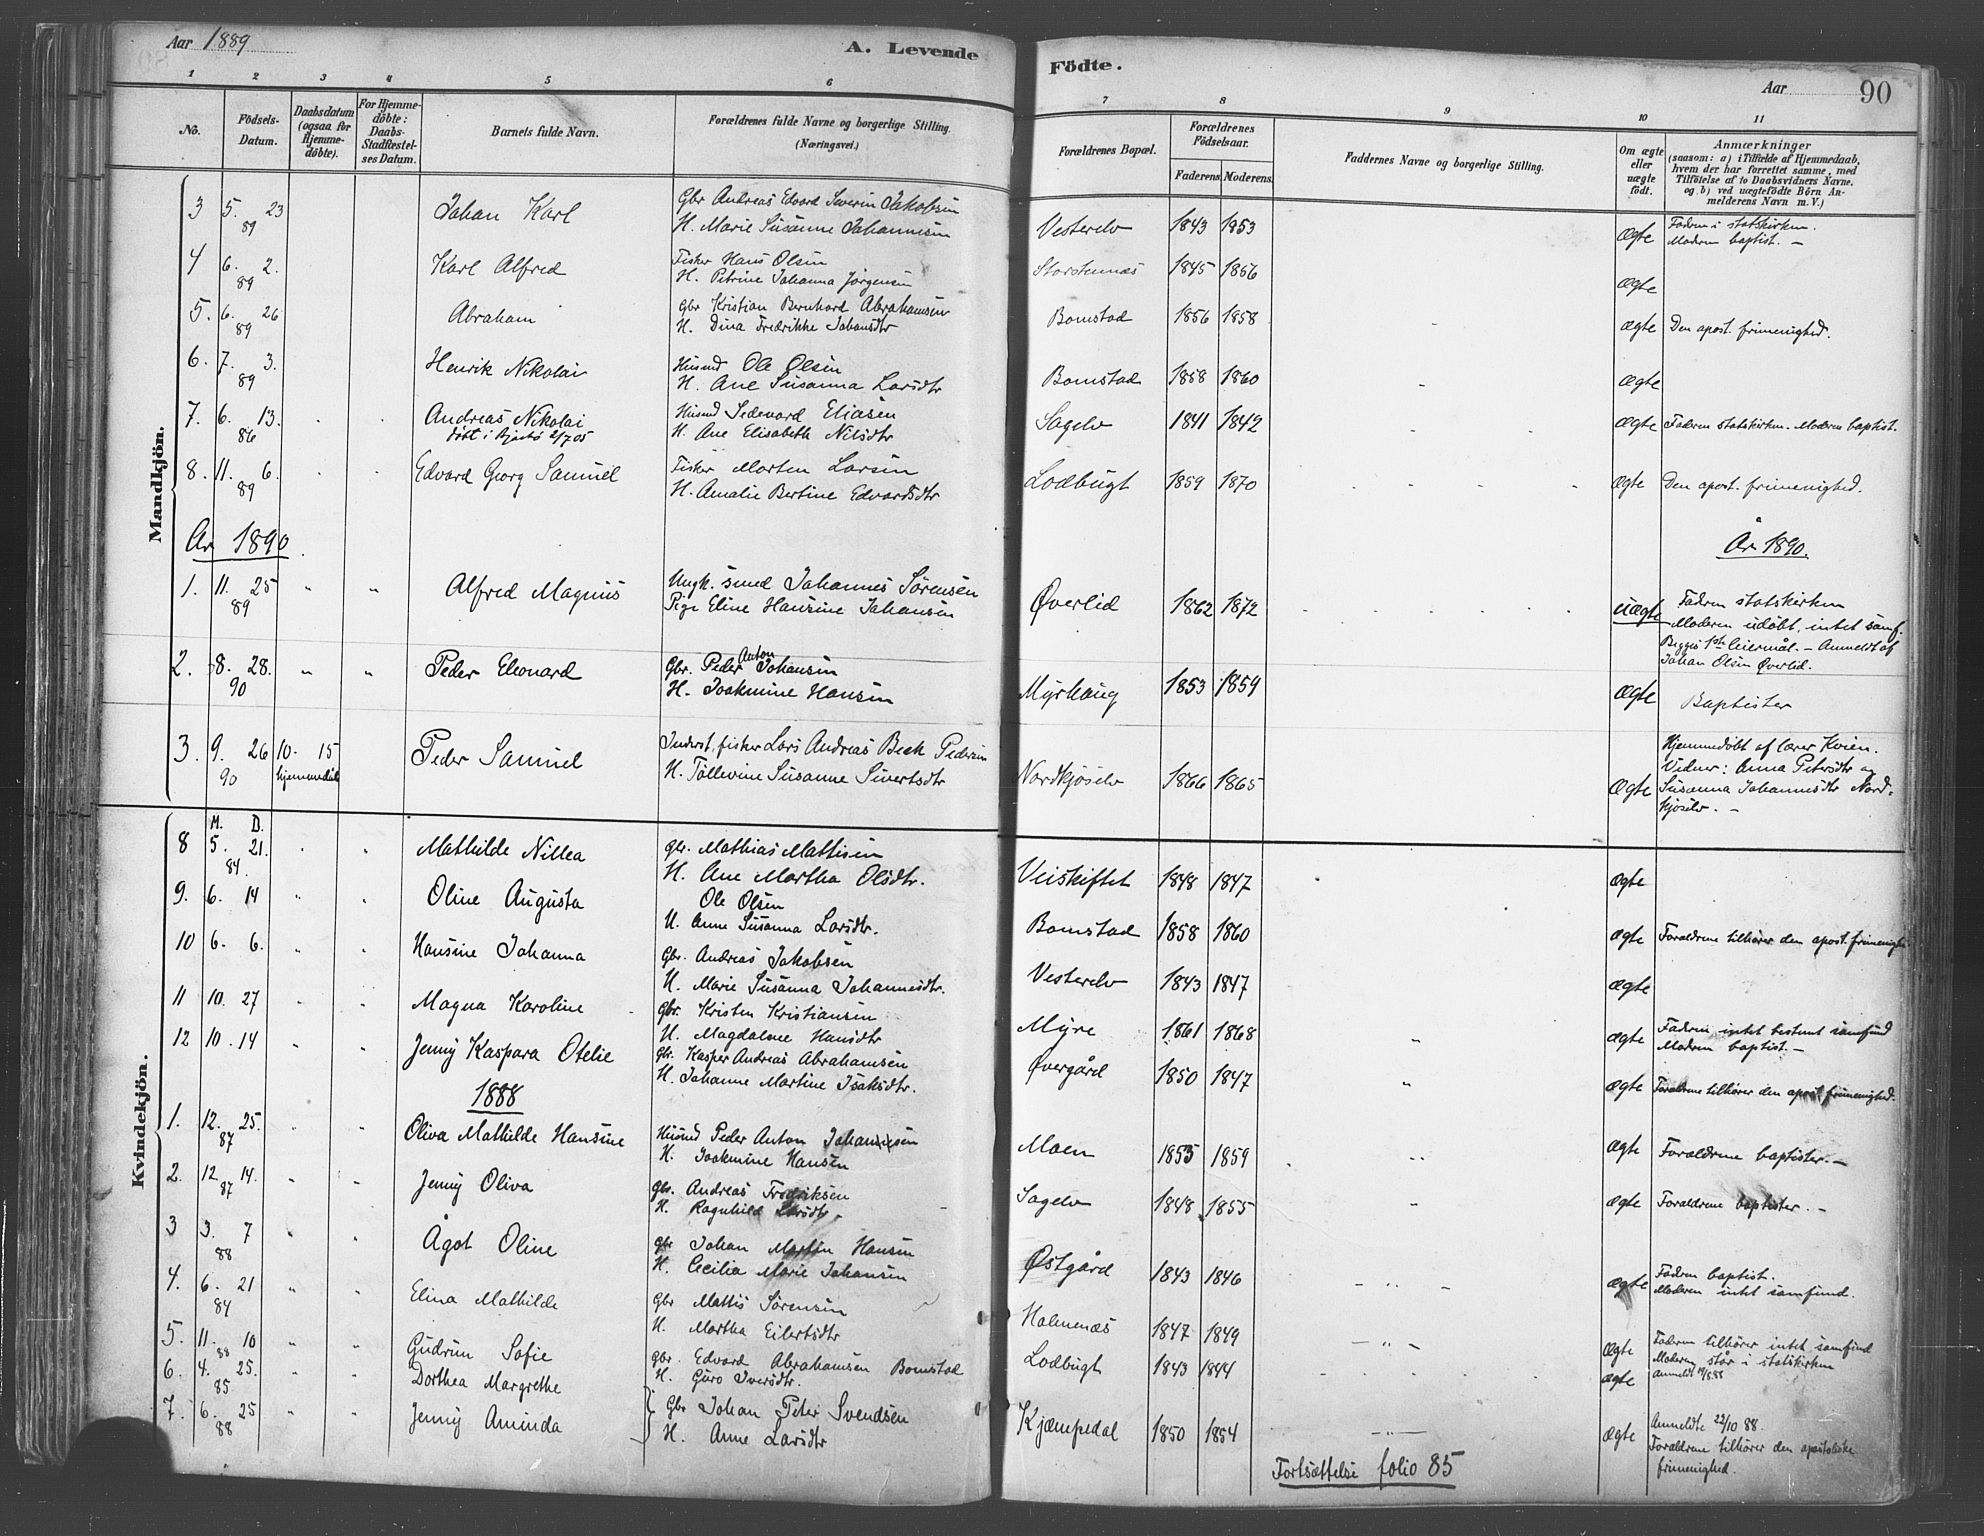 Aar 1889
A. Levende
Födte.
Aar
90
1 2 3 4 5 6 7 8 9 10 11
No.
Födsels-Datum.
Daabsdatum (ogsaa for Hjemme-döbte).
For Hjemme-döbte: Daabs-Stadfæstel-ses Datum.
Barnets fulde Navn.
Forældrenes fulde Navne og borgerlige Stilling. (Næringsvei.)
Forældrenes Bopæl.
Forældrenes Födselsaar.
Faderens. Moderens.
Faddernes Navne og borgerlige Stilling.
Om ægte eller uægte födt.
Anmærkninger
(saasom: a) i Tilfælde af Hjemmedaab, hvem der har forrettet samme, med Tilföielse af to Daabsvidners Navne, og b) ved uægtefödte Börn An-melderens Navn m. V.)
Mandkjön.
3 5. 23 89 Johan Karl Gbr Andreas Edvard Severin Jakobsen
H. Marie Susanne Johannesen Vesterelv 1843 1853 ægte Fadren i statskirken. Modren baptist. –
4 6. 2. 89 Karl Alfred Fisker Hans Olsen
H. Petrine Johanna Jørgensen Storstennæs 1845 1856 ægte
5. 6. 26 89 Abraham Gbr Kristian Bernhard Abrahamsen
H. Dina Fredrikke Johansdtr Bomstad 1856 1858 ægte Den apost. frimenighed.
6. 7. 3. 89 Henrik Nikolai Husmd Ole Olsen
H. Ane Susanna Larsdtr Bomstad 1858 1860 ægte
7. 6. 13. 86 Andreas Nikolai Husmd Sedevard Eliasen
døbt i 2/7 05 H. Ane Elisabeth Nilsdtr Sagelv 1841 1842 ægte Fadren statskirken. Modren baptist.
8. 11. 6. 89 Edvard Georg Samuel Fisker Morten Larsen
H. Amalie Bertine Edvardsdtr Lodbugt 1859 1870 ægte Den apost. frimenighed.
År 1890.
År 1890.
1. 11. 25 89 Alfred Magnus Ungk. smed Johannes Sørensen
Pige Eline Hansine Johansen Øverlid 1862 1872 uægte Fadren statskirken
Moderen udøbt, intet samf.
Begges 1ste leiermål. – Anmeldt af
Johan Olsen Øverlid.
2. 8. 28. 90 Peder Eleonard Gbr. Peder Anton Johansen
H. Joakmine Hansen Myrhaug 1853 1859 ægte Baptister
3. 9. 26 90 10. 15 hjemmedøbt Peder Samuel Inderst, fisker Lars Andreas Beck Pedersen
H. Tollevine Susanne Sivertsdtr Nordkjoselv 1866 1865 ægte Hjemmedøbt af lærer Kvien.
Vidner: Anna Petersdtr og
Susanna Johannesdtr Nord-
kjoselv. –
Kvindekjön.
M. D.
8 5. 21. 84. Mathilde Nillea gbr. Mathias Mattisen
H. Ane Martha Olsdtr. Veiskiftet 1848 1847 ægte
9. 6. 14 Oline Augusta Ole Olsen
H. Anne Susanna Larsdtr. Bomstad 1858 1860 ægte Forældrene tilhører den apost. frimenighed
10 6. 6. Hansine Johanna Gbr. Andreas Jakobsen
H. Marie Susanna Johannesdtr. Vesterelv 1843 1847 ægte
11 10. 27 Magna Karoline gbr. Kristen Kristiansen
H. Magdalene Hansdtr Myre 1861 1868 ægte Fadren intet bestemt samfund
Modren baptist. –
12 10. 14 Jenny Kaspara Otelie gbr. Kasper Andreas Abrahamsen
H. Johanne Martine Isaksdtr. Øvergård 1850 1847 ægte Forældrene tilhører den apost frimenighed.
1888
1. 12. 25. 87 Oliva Mathilde Hansine Husmd Peder Anton Johannesen
H. Joakmine Hansen Moen 1853 1859 ægte Forældrene baptister. –
2. 12. 14. 87 Jenny Oliva gbr. Andreas Fredriksen
H. Ragnhild Larsdtr. Sagelv 1848 1855 ægte Forældrene baptister. –
3 3. 7 88 Ågot Oline gbr Johan Martin Hansen
H. Cecilia Marie Johansen Østgård 1843 1846 ægte Fadren baptist.
Moderen intet samfund.
4. 6. 21 84 Elina Mathilde Gbr Mattis Sørensen
H. Martha Eilertsdtr Holmenæs 1847 1849 ægte Fadren tilhører intet samfund
Moderen står i statskirken
5. 11. 10 88 Gudrun Sofie gbr. Edvard Abrahamsen Bomstad
6. 4. 25. 85 Dorthea Margrethe H. Guro Iversdtr. Lodbugt 1843 1844 ægte
7. 6. 25 88 Jenny Aminda Gbr Johan Peter Svendsen
H. Anne Larsdtr Kjæmpedal 1850 1854 ægte Anmeldte 22/10 88.
Forældrene tilhører den apostoliske
frimenighed.
Fortsættelse folio 85